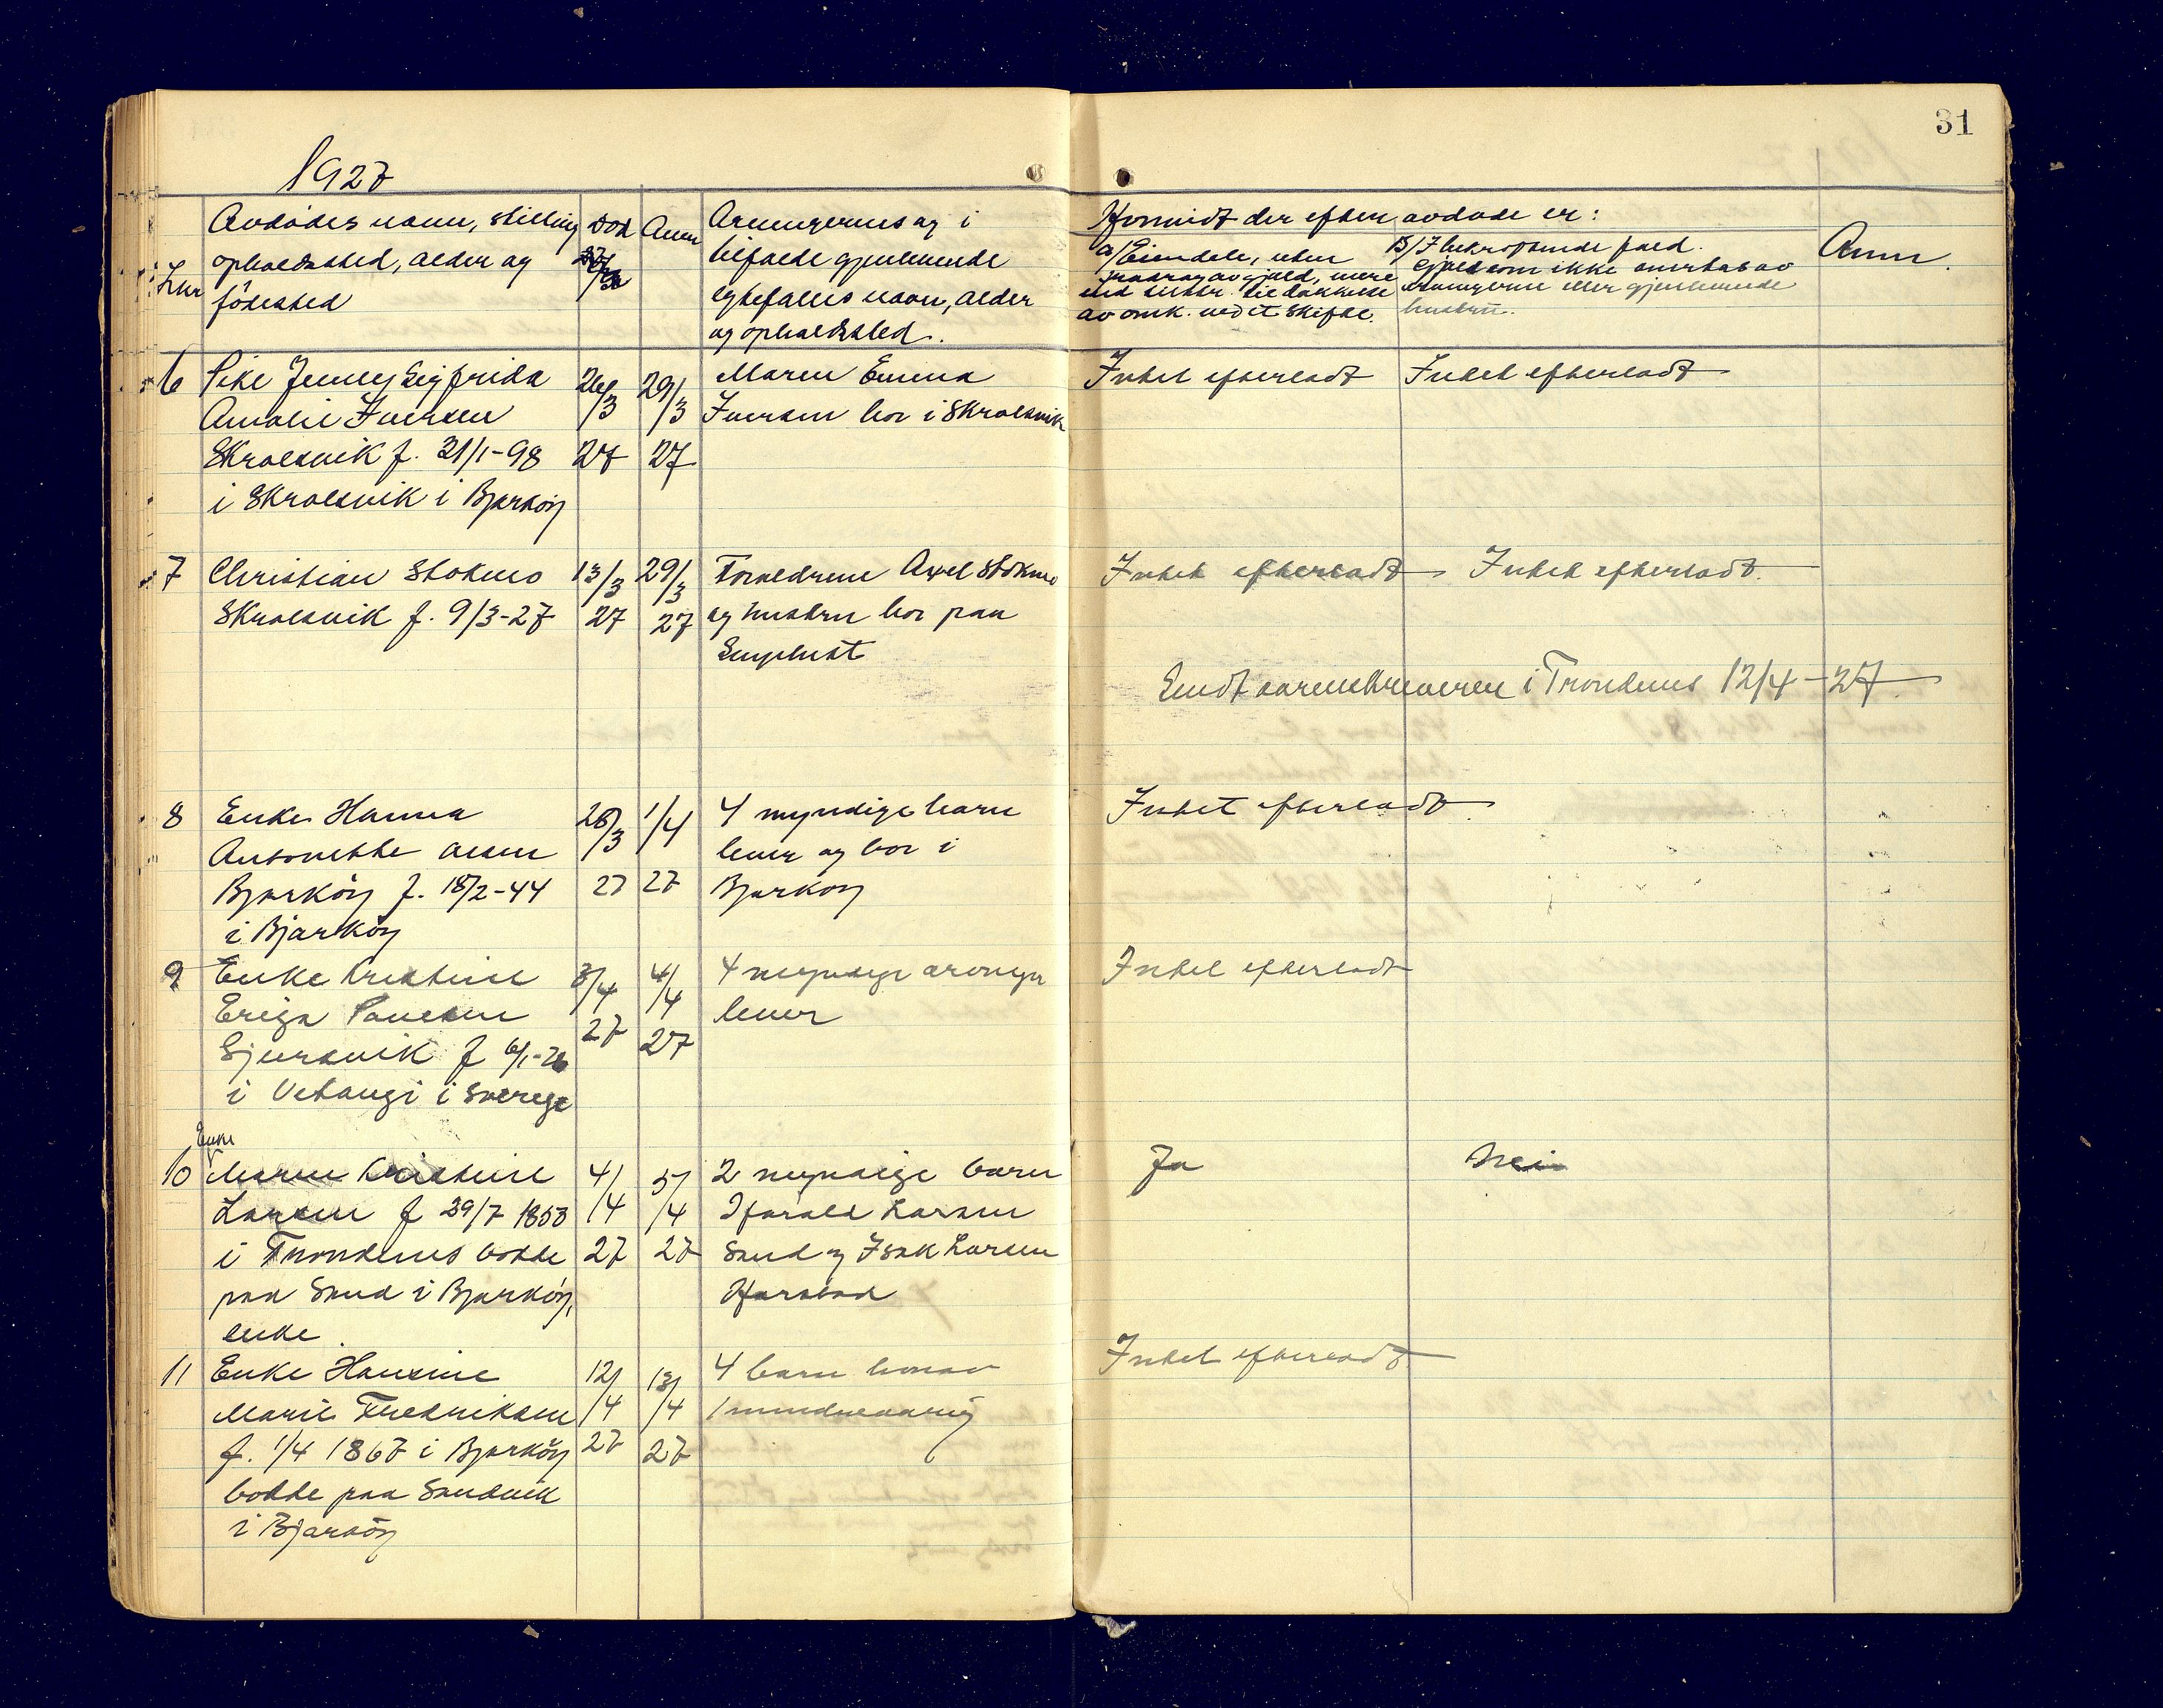 31
1927
Lnr
Avdödes navn, stilling
opholdssted, alder og
födested
Död
Anm
Arvingernes og i
tilfælde gjenlevende
egtefælles navn, alder
og opholdssted.
Hvorvidt der efter avdøde er:
a/ Eiendele, uten
fradrag av gjæld, mere
end tilstr. til dækkelse
av omk. ved et skifte.
B/ I bekræftende fald
gjæld som ikke overtas av
arvingerne eller gjenlevende
hustru.
Anm.
6 Pike Jenny Sigfrida 26/3 29/3 Maren Emma Intet efterladt Intet efterladt
Amalie Iversen Iversen bor i Skrolsvik
Skrolsvik f. 31/1-98 27 27
i Skrolsvik i Bjarköy
7 Christian Stokmo 13/3 29/3 Forældrene Axel Stokmo Intet efterladt Intet efterladt.
Skrolsvik f. 9/3-27 27 27 og hustru bor paa
Sendt sorenskriveren i Trondenes 12/4-27.
8 Enke Hanna 26/3 1/4 4 myndige barn Intet efterladt.
Antonette Olsen lever og bor i
Bjarköy f. 18/2-44 27 27 Bjarkøy
i Bjarköy
9 Enke Kristine 3/4 4/4 4 myndige arvinger Intet efterladt
Eriga Paulsen 27 27 lever
i Sverige
Enke
10 Maren Kristine 4/4 5/4 2 myndige barn Ja Nei
Larsen f 29/7 1853 Harald Larsen
i Trondenes bodde 27 27 Sand og Isak Larsen
paa Sand i Bjarköy, Harstad
enke.
11 Enke Hansine 12/4 13/4 4 barn hvorav Intet efterladt
Marie Fredriksen 1 mindreaarig
f. 1/4 1867 i Bjarköy 27 27
bodde paa Sandvik
i Bjarköy